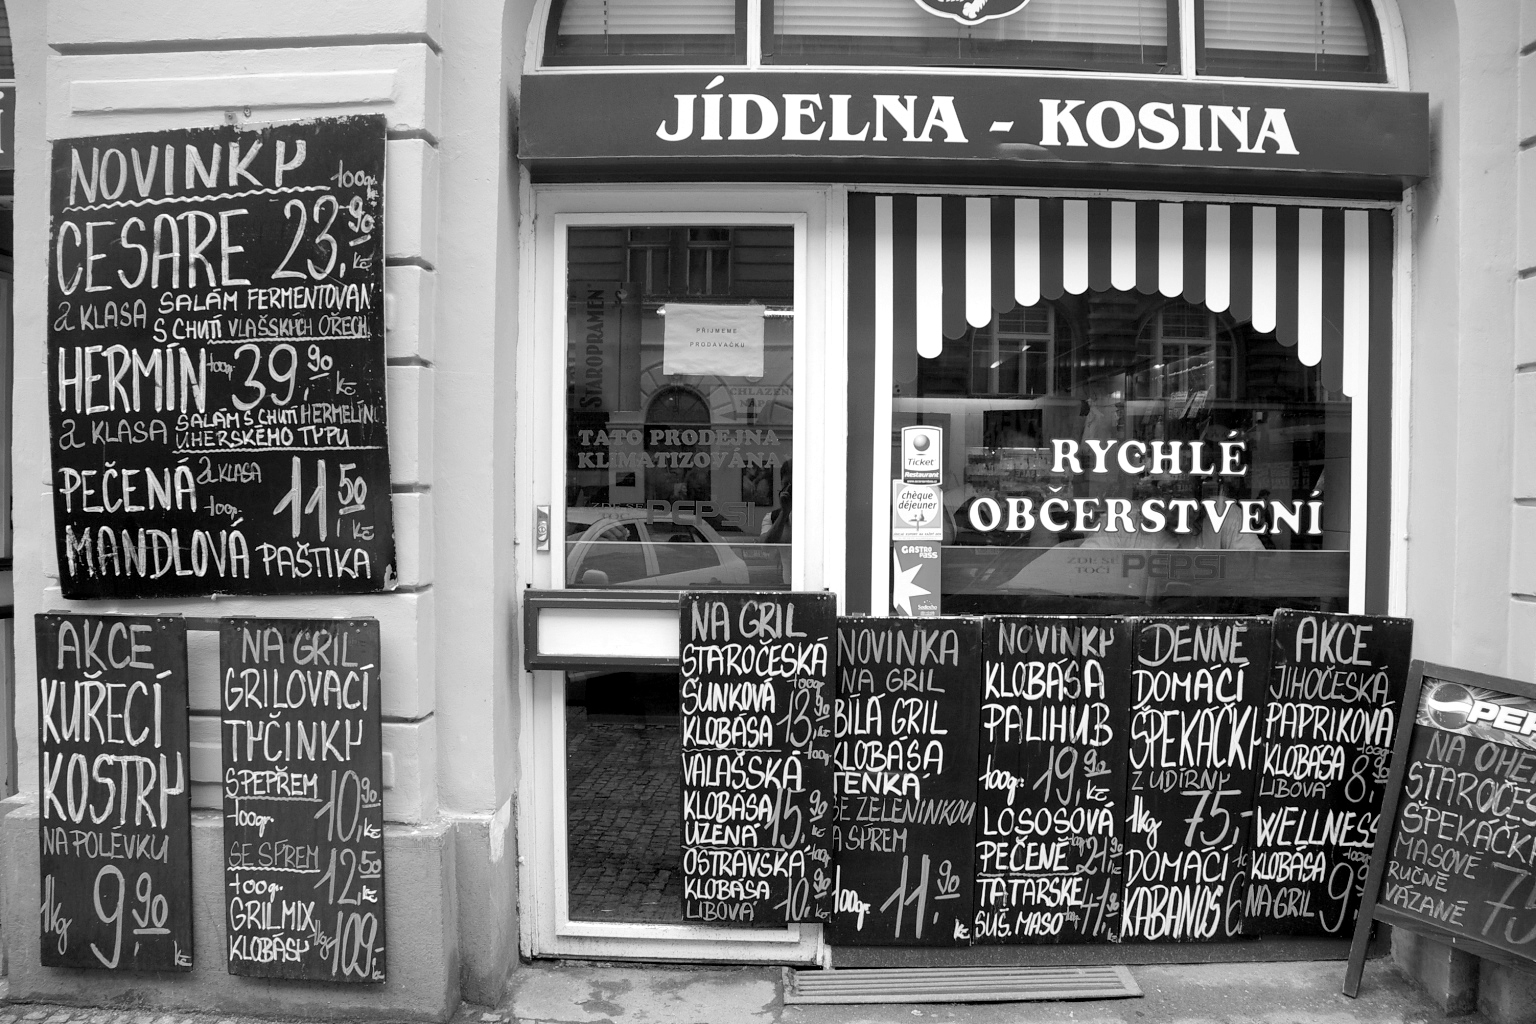 JÍDELNA - KOSINA
NOVINKY 100gr.
CESARE 23,90 Kč
2 KLASA SALÁM FERMENTOVAN
S CHUTÍ VLAŠSKÝCH OŘECH
HERMÍN 100gr. 39,90 Kč
2 KLASA SALÁM S CHUTÍ HERMELÍNU
UHERSKÉHO TYPU
PEČENÁ 2 KLASA 100gr. 11,50 Kč
MANDLOVÁ PAŠTIKA
STAROPRAMEN
PŘIJMEME
PRODAVAČKU
TATO PRODEJNA
KLIMATIZOVÁNA
ZDE SE
TOČÍ PEPSI
Ticket
Restaurant
chèque
déjeuner
GASTRO
PASS
Sodexho
RYCHLÉ
OBČERSTVENÍ
ZDE SE
TOČÍ PEPSI
AKCE
KUŘECÍ
KOSTRY
NA POLÉVKU
1kg 9,90 Kč
NA GRIL
GRILOVACÍ
TYČINKY
S PEPŘEM
100gr. 10,90 Kč
SE SÝREM
100gr. 12,50 Kč
GRILMIX
KLOBÁSY 1kg 109,- Kč
NA GRIL
STAROČESKÁ
ŠUNKOVÁ 100gr.
KLOBÁSA 13,90 Kč
VALAŠSKÁ 100gr.
KLOBÁSA 15,90 Kč
UZENÁ
OSTRAVSKÁ 100gr.
KLOBÁSA 10,90 Kč
LIBOVÁ
NOVINKA
NA GRIL
BÍLÁ GRIL
KLOBÁSA
TENKÁ
SE ZELENINKOU
A SÝREM
100gr. 11,90 Kč
NOVINKY
KLOBÁSA
PALIHUB
100gr. 19,90 Kč
LOSOSOVÁ
PEČENĚ 21,90
TATARSKÉ
SUŠ. MASO 41,90 Kč
DENNĚ
DOMÁCÍ
ŠPEKÁČKY
Z UDÍRNY
1kg 75,-
DOMÁCÍ
KABANOS 6
AKCE
JIHOČESKÁ
PAPRIKOVÁ
KLOBÁSA 100gr. 8,90
LIBOVÁ
WELLNESS
KLOBÁSA 100gr.
NA GRIL 9,
PEP
NA OHE
STAROČES
ŠPEKÁČK
MASOVÉ
RUČNĚ
VÁZANÉ 75